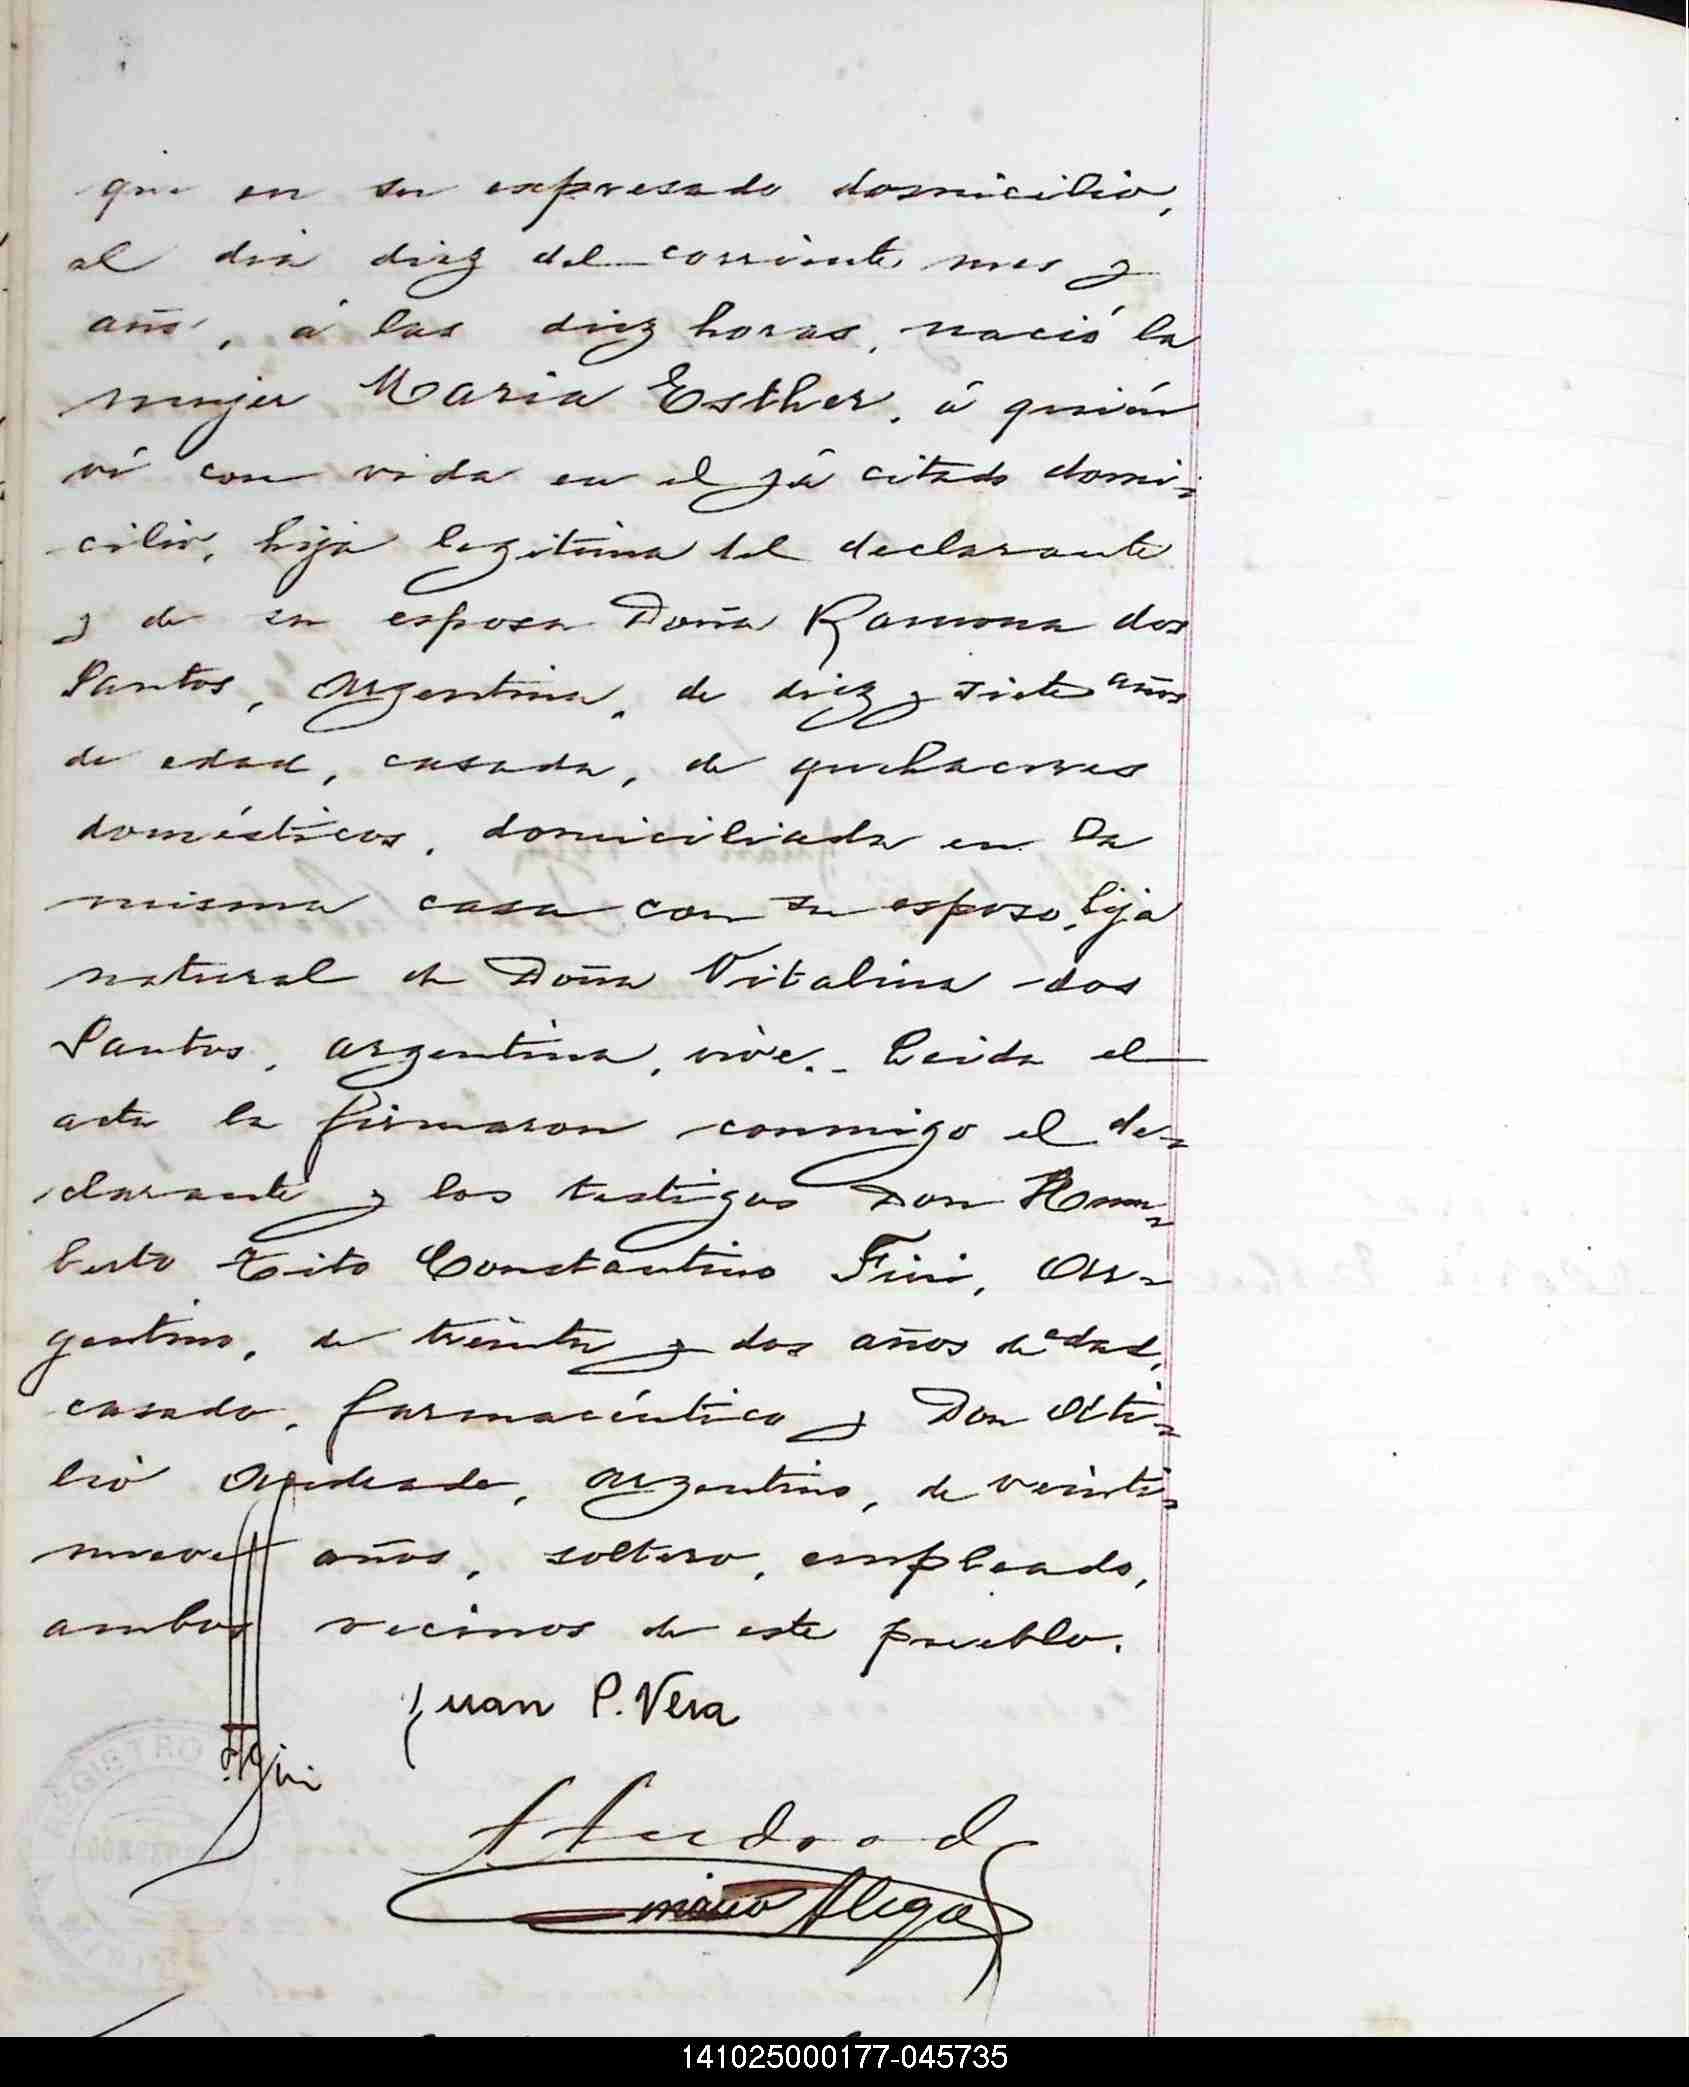 que en su expresado domicilio,
el dia diez del corriente mes y
año, á las diez horas, nació la
mujer Maria Esther, á quién
ví con vida en el yá citado domi-
cilio, hija legitima del declarante
y de su esposa Doña Ramona dos
Santos, argentina, de diez y siete años
de edad, casada, de quehaceres
domésticos, domiciliada en la
misma casa con su esposo, hija
natural de Doña Vitalina dos
Santos, argentina, vive.- Leida el
acta la firmaron conmigo el de-
clarante y los testigos Don Hum-
berto Tito Constantino Fini, Ar-
gentino, de treinta y dos años de edad,
casado, farmacéutico y Don Oti-
lio Andrade, argentino, de veinti-
nueve años, soltero, empleado,
ambos vecinos de este pueblo.
Juan P. Vera
Fini
REGISTRO
141025000177-045735